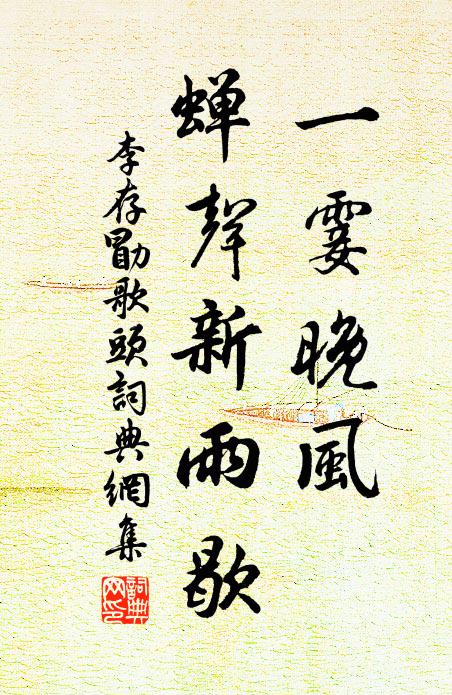 一霎晚風
蟬聲新雨歇
李存勖歌頭詞典網集
詞典網印